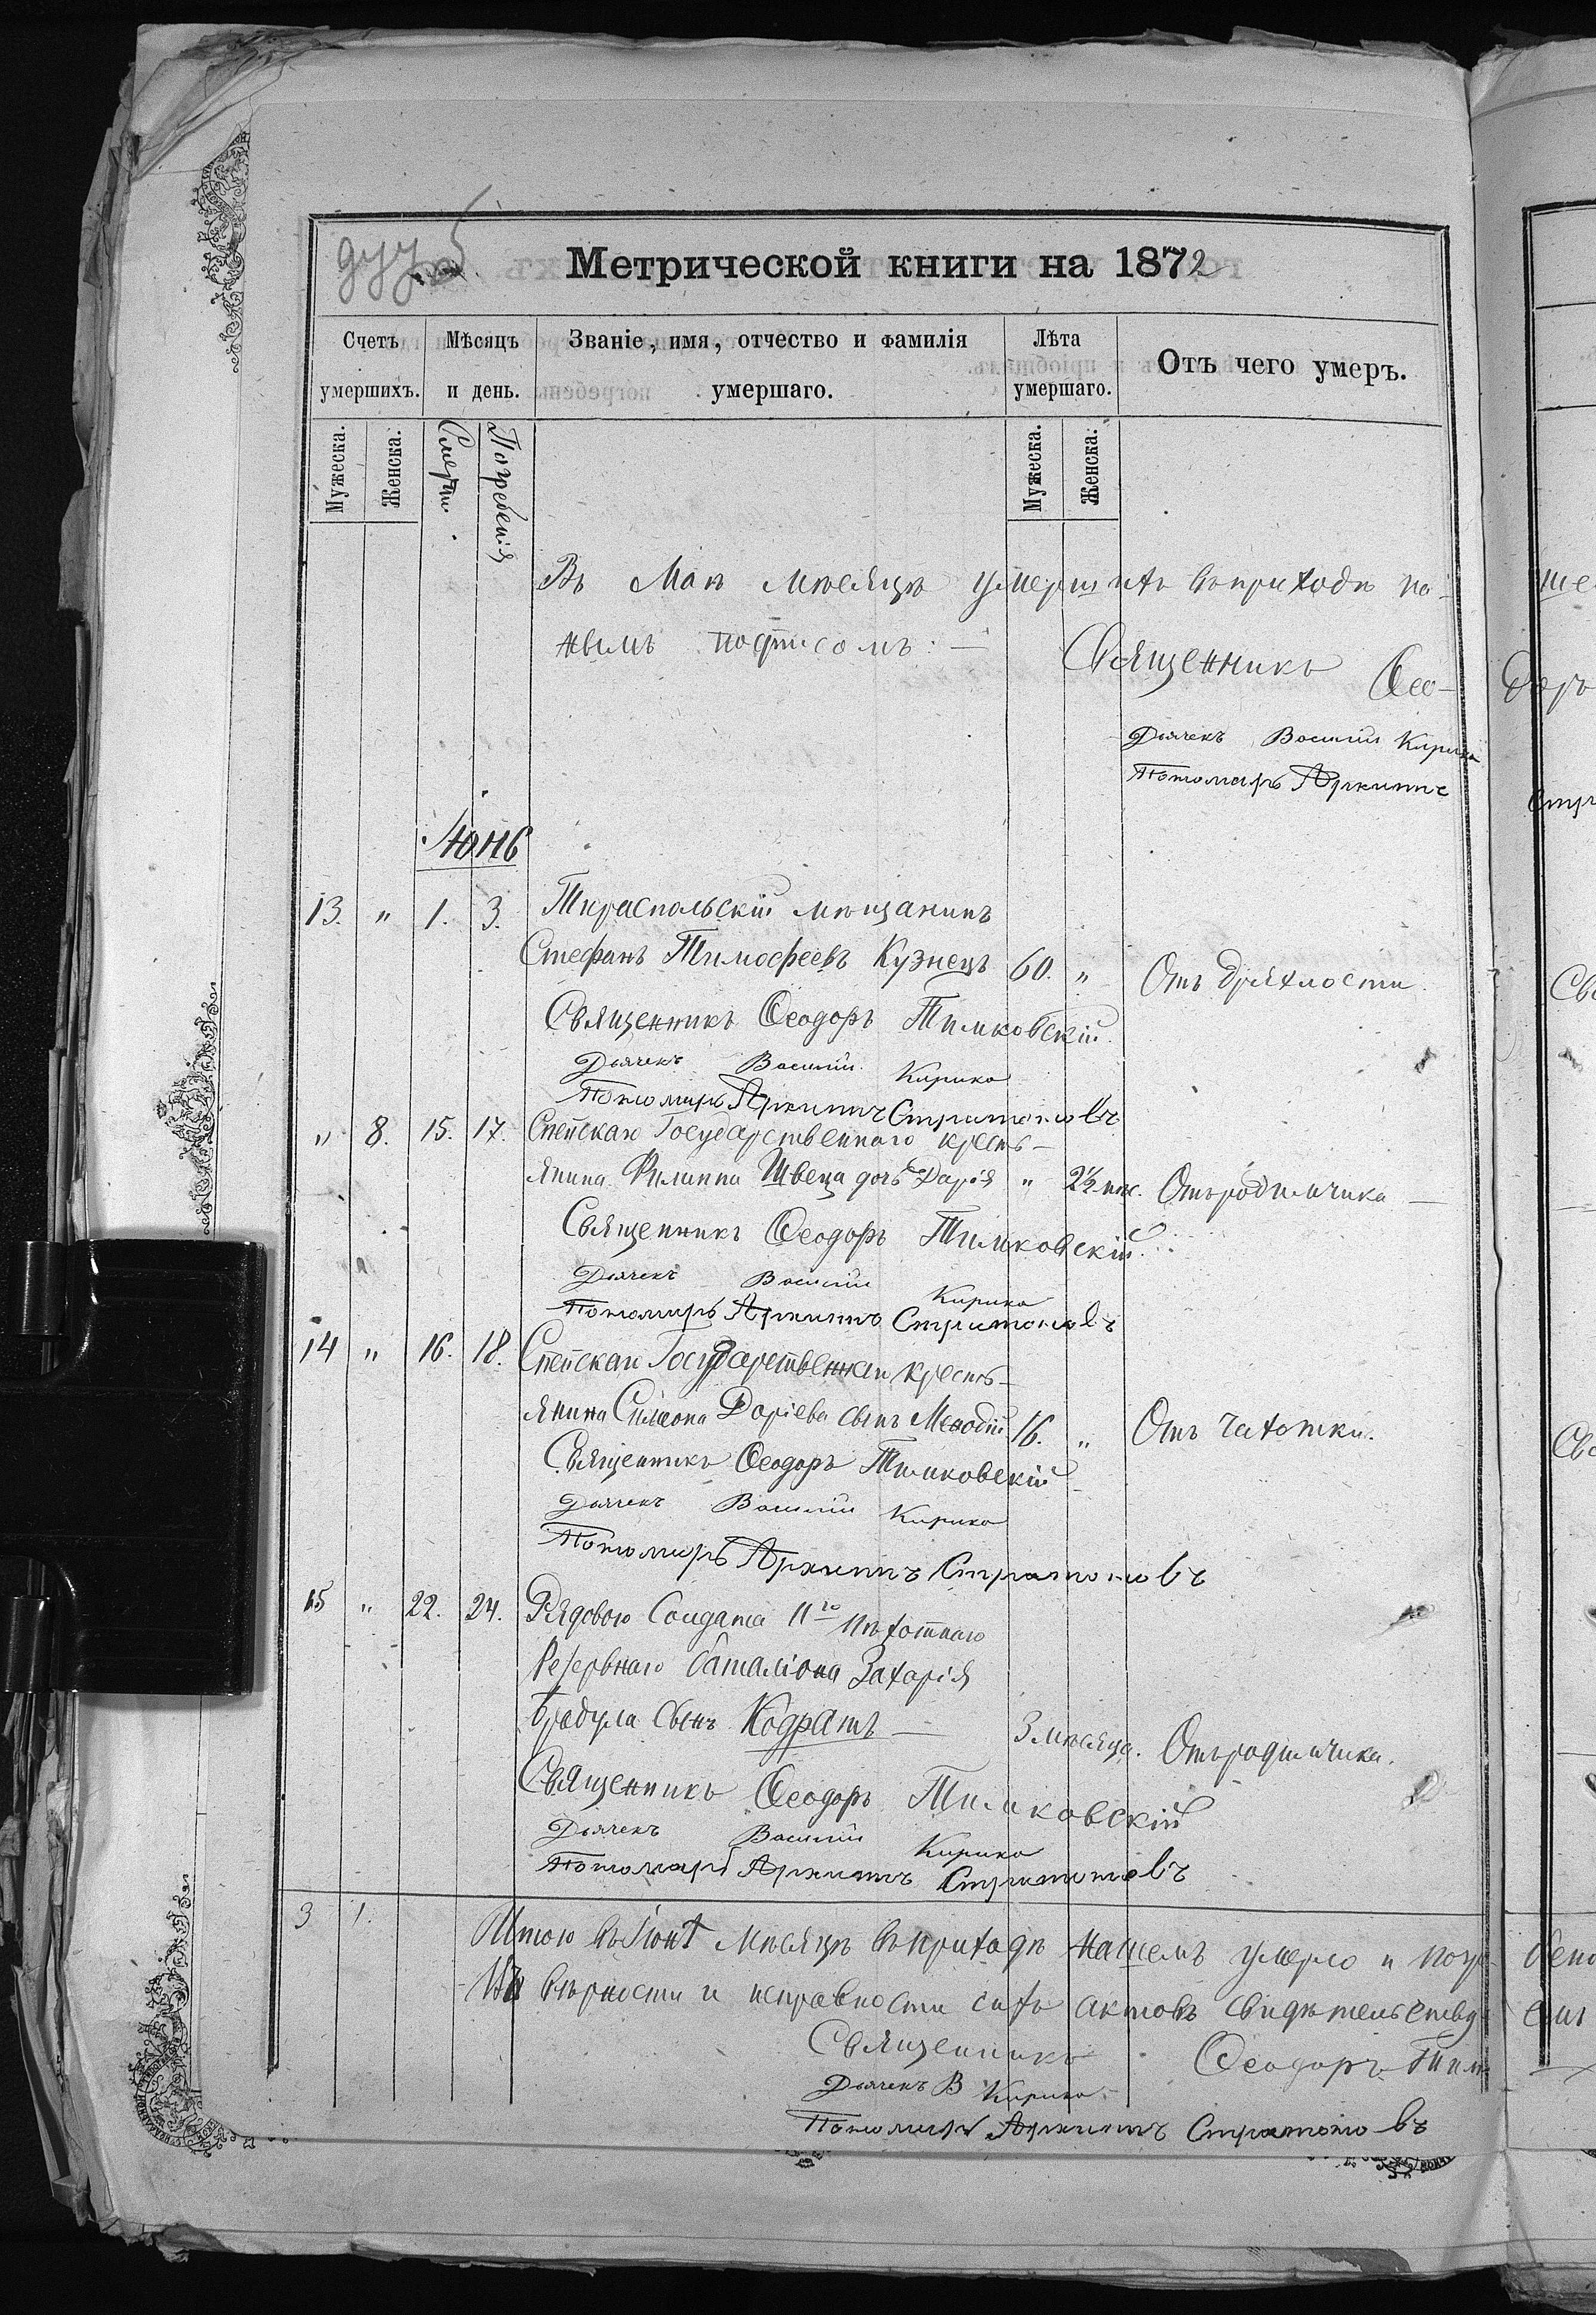 Метрической книги на 1872
Счетъ умершихъ.
Мѣсяцъ и день.
Званіе, имя, отчество и фамилія умершаго.
Лѣта умершаго.
Отъ чего умеръ.
Мужеска.
Женска.
Смерти.
Погребенія
Мужеска.
Женска.
Въ Маѣ мѣсяцѣ умершихъ въ приходѣ на-
шемъ
Священникъ Ѳео-
Дьячекъ Василій Кирика
Пономарь Архипъ
Іюнь
13. " 1. 3. Тираспольскій мѣщанинъ
Стефанъ Тимофеевъ Кузнецъ 60. " Отъ дряхлости.
Священникъ Ѳеодоръ Тимковскій.
Дьячекъ Василій Кирика
Пономарь Архипъ Стратоновъ
" 8. 15. 17. Спейскаго Государственнаго кресть-
янина Филиппа Швеца дочь Дарія " 2½ мѣс. Отъ родимчика —
Священникъ Ѳеодоръ Тимковскій.
Дьячекъ Василій Кирика
Пономарь Архипъ Стратоновъ
14 " 16. 18. Спейскаго Государственнаго кресть-
янина Симеона Доріева сынъ Меѳодій 16. " Отъ чахотки.
Священникъ Ѳеодоръ Тимковскій
Дьячекъ Василій Кирика
Пономарь Архипъ Стратоновъ
15 " 22. 24. Рядового Солдата 11го пѣхотнаго
Резервнаго баталіона Захарія
Брадула сынъ Кодратъ — 3 мѣсяца. Отъ родимчика.
Священникъ Ѳеодоръ Тимковскій
Дьячекъ Василій Кирика
Пономарь Архипъ Стратоновъ
3 1. Итого въ Іюнѣ мѣсяцѣ въ приходѣ нашемъ умерло и погре
Въ вѣрности и исправности сихъ актовъ свидѣтельству
Священникъ Ѳеодоръ Тим
Дьячекъ В Кирика
Пономарь Архипъ Стратоновъ